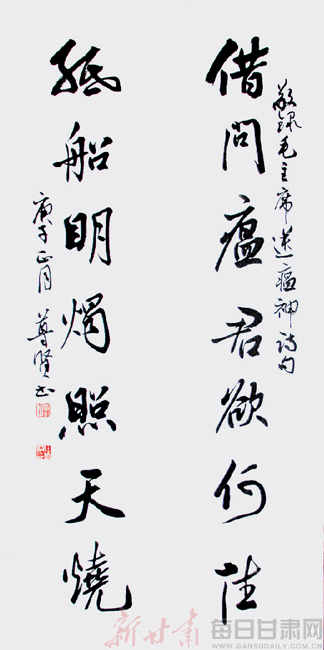 敬録毛主席送瘟神詩句
借問瘟君欲何往
紙船明燭照天燒
庚子正月 尊賢書
新甘肃
每日甘肃网
WWW.GANSUDAILY.COM.CN